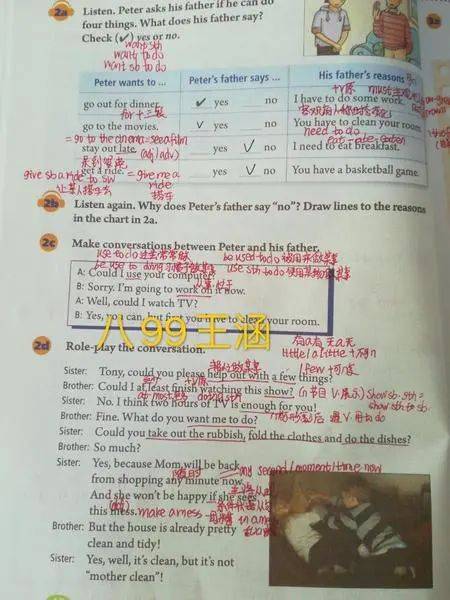 2a Listen. Peter asks his father if he can do
four things. What does his father say?
Check (✓) yes or no.
want sth
want to do
want sb to do
Peter wants to ... Peter's father says ... His father's reasons
go out for dinner. ✓ yes no I have to do some work.
go to the movies. ✓ yes no You have to clean your room.
need to do
= go to the cinema = see a film
eat-ate-eaten
stay out late. yes ✓ no I need to eat breakfast.
(adj/adv)
get a ride. yes ✓ no You have a basketball game.
give sb a ride to sw = give me a
ride
2b Listen again. Why does Peter's father say "no"? Draw lines to the reasons
in the chart in 2a.
2c Make conversations between Peter and his father.
use to do 过去常常做 be used to do 被用来做某事
be use to doing 习惯于做某事 use sth to do 使用某物做某事
A: Could I use your computer?
B: Sorry. I'm going to work on it now.
A: Well, could I watch TV?
B: Yes, you can, but first you have to clean your room.
八99王涵
2d Role-play the conversation.
little / a little + 不可n
few + 可度
Sister: Tony, could you please help out with a few things?
Brother: Could I at least finish watching this show? (n 节目 v.展示) show sb. sth =
at most 最多 doing sth show sth to sb.
Sister: No. I think two hours of TV is enough for you!
Brother: Fine. What do you want me to do?
Sister: Could you take out the rubbish, fold the clothes and do the dishes?
Brother: So much?
Sister: Yes, because Mom will be back
any second/moment/time now
from shopping any minute now.
And she won't be happy if she sees
this mess. make a mess
Brother: But the house is already pretty
clean and tidy!
Sister: Yes, well, it's clean, but it's not
"mother clean"!